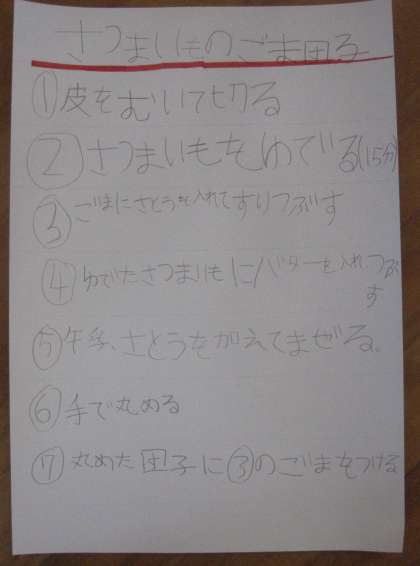 さつまいものごま団子
①皮をむいて切る
②さつまいもをゆでる(15分)
③ごまにさとうを入れてすりつぶす
④ゆでたさつまいもにバターを入れ、つぶ
す
⑤牛乳、さとうをかえてまぜる。
⑥手で丸める
⑦丸めた団子に③のごまをつける